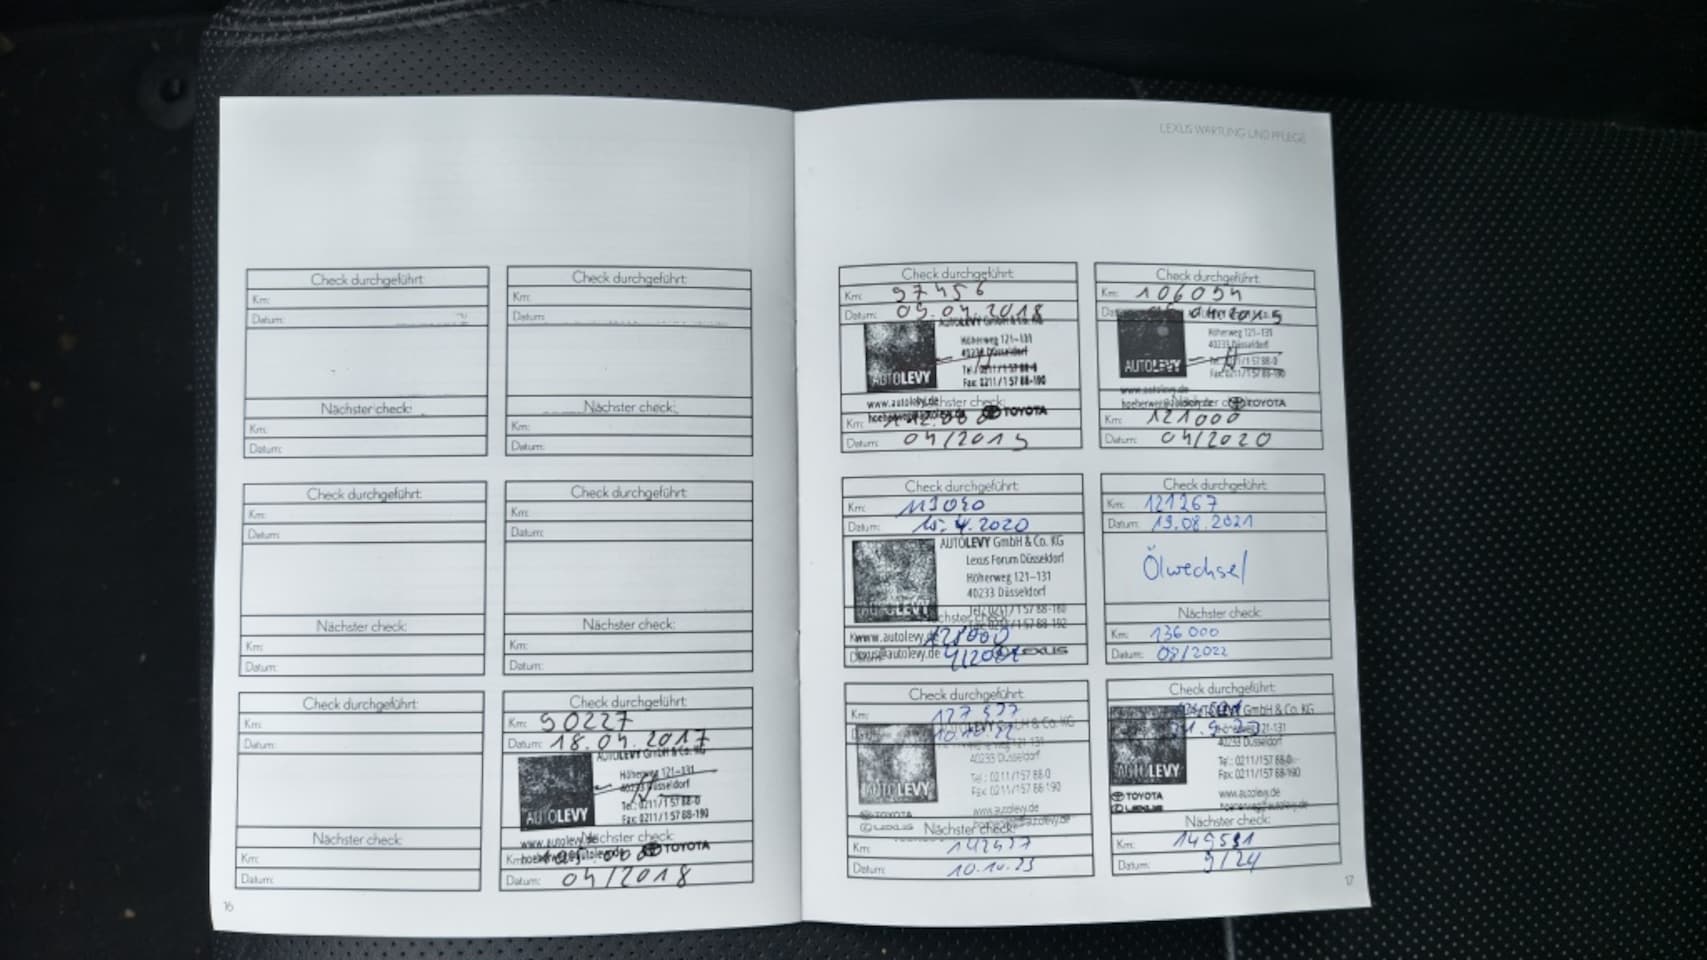 Check durchgeführt:
Km:
Datum:
Nächster check:
Km:
Datum:
Check durchgeführt:
Km:
Datum:
Nächster check:
Km:
Datum:
Check durchgeführt:
Km:
Datum:
Nächster check:
Km:
Datum:
Check durchgeführt:
Km:
Datum:
Nächster check:
Km:
Datum:
Check durchgeführt:
Km:
Datum:
Nächster check:
Km:
Datum:
Check durchgeführt:
Km: 90227
Datum: 18.04.2017
AUTOLEVY GmbH & Co. KG
Höherweg 121-131
40233 Düsseldorf
Tel.: 0211/1 57 88-0
Fax: 0211/1 57 88-190
AUTOLEVY
www.autolevy.de
Nächster check:
Km:
TOYOTA
Datum: 04/2018
16
LEXUS WARTUNG UND PFLEGE
Check durchgeführt:
Km: 97456
Datum: 05.04.2018
AUTOLEVY GmbH & Co. KG
Höherweg 121-131
40233 Düsseldorf
Tel.: 0211/1 57 88-0
Fax: 0211/1 57 88-190
AUTOLEVY
www.autolevy.de
Nächster check:
TOYOTA
Km:
Datum: 04/2019
Check durchgeführt:
Km: 106054
Datum:
Höherweg 121-131
40233 Düsseldorf
AUTOLEVY
Fax: 0211/1 57 88-190
www.autolevy.de
TOYOTA
Km: 121000
Datum: 04/2020
Check durchgeführt:
Km: 113090
Datum: 15.4.2020
AUTOLEVY GmbH & Co. KG
Lexus Forum Düsseldorf
Höherweg 121-131
40233 Düsseldorf
AUTOLEVY
Tel.: 0211/1 57 88-180
Fax: 0211/1 57 88-192
Nächster check:
Km: www.autolevy.de 128000
Datum: lexus@autolevy.de
LEXUS
Check durchgeführt:
Km: 121267
Datum: 19.08.2021
Ölwechsel
Nächster check:
Km: 136000
Datum: 08/2022
Check durchgeführt:
Km:
Datum: 10.10.22
40233 Düsseldorf
Tel.: 0211/157 88-0
Fax: 0211/157 88-190
AUTOLEVY
www.autolevy.de
TOYOTA
LEXUS
Nächster check:
Km: 142477
Datum: 10.10.23
Check durchgeführt:
GmbH & Co. KG
40233 Düsseldorf
Tel.: 0211/157 88-0
Fax: 0211/157 88-190
AUTOLEVY
TOYOTA
www.autolevy.de
LEXUS
Nächster check:
Km: 149591
Datum: 9/24
17